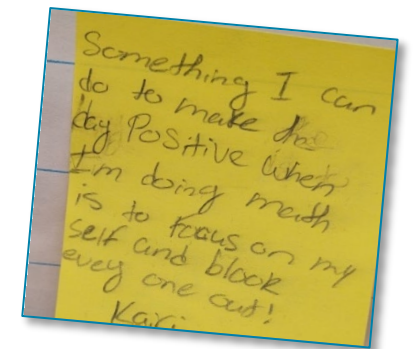 Something I can
do to make the
day Positive when
I'm doing math
is to focus on my
self and block
evey one out!
Kari